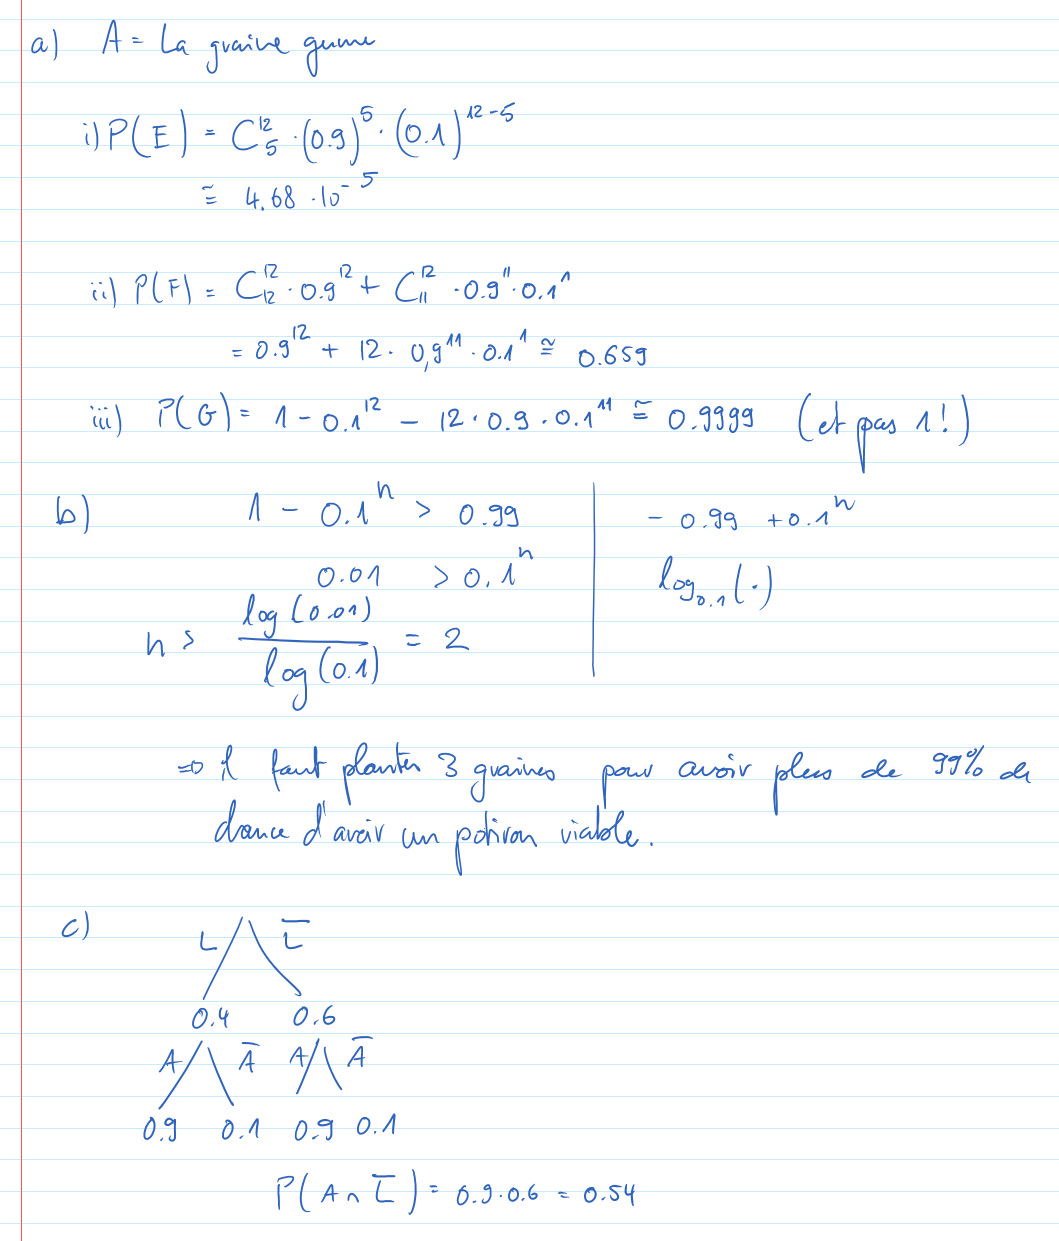 a) A = La graine germe
i) P(E) = C₅¹² · (0.9)⁵ · (0.1)¹²⁻⁵
≅ 4.68 · 10⁻⁵
ii) P(F) = C₁₂¹² · 0.9¹² + C₁₁¹² · 0.9¹¹ · 0.1¹
= 0.9¹² + 12 · 0,9¹¹ · 0.1¹ ≅ 0.659
iii) P(G) = 1 - 0.1¹² - 12 · 0.9 · 0.1¹¹ ≅ 0.9999 (et pas 1!)
b) 1 - 0.1ⁿ > 0.99 | - 0.99 + 0.1ⁿ
0.01 > 0.1ⁿ | log₀.₁(·)
n > log(0.01) / log(0.1) = 2
⇒ il faut planter 3 graines pour avoir plus de 99% de
chance d'avoir un potiron viable.
c) L L̅
0.4 0.6
A A̅ A A̅
0.9 0.1 0.9 0.1
P(A ∩ L̅) = 0.9 · 0.6 = 0.54